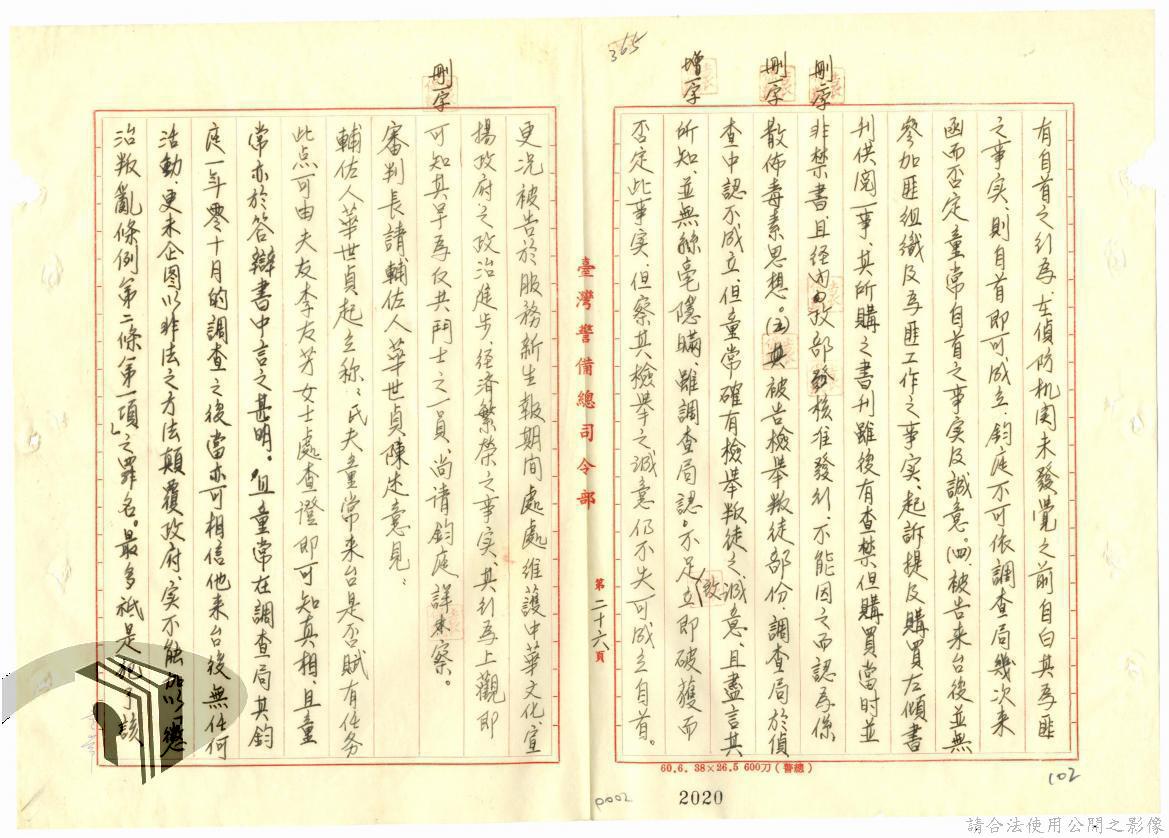 365
刪二字
刪一字
增一字
有自首之行為，在偵防机関未發覺之前自白其為匪
之事实，則自首即可成立，鈞庭不可依調查局幾次来
函而否定童常自首之事实及誠意。㈣被告来台後並無
參加匪組織及為匪工作之事实，起訴提及購買左傾書
刊供閱一事，其所購之書刊雖後有查禁但購買當时並
非禁書，且經內政部發核准發行，不能因之而認為係
散佈毒素思想。㈤其被告檢舉叛徒部份調查局於偵
查中認不成立，但童常確有檢舉叛徒之誠意，且盡言其
所知並無絲毫隱瞞，雖調查局認，不足致立即破獲而
否定此事实，但察其檢舉之誠意仍不失可成立自首。
臺灣警備總司令部
第二十六頁
刪一字
更況被告於服務新生報期间處處維護中華文化，宣
揚政府之政治進步、經濟繁榮之事实，其行為上觀即
可知其早為反共鬥士之一員，尚请鈞庭詳察。
審判長請輔佐人華世貞陳述意見：
輔佐人華世貞起立称：氏夫童常来台是否賦有任务
此点可由夫友李友芳女士處查證即可知真相，且童
常亦於答辯書中言之甚明。且童常在調查局其鈞
庭一年零十月的調查之後當亦可相信他来台後無任何
活動，更未企图以非法之方法顛覆政府，实不能加以「懲
治叛亂條例第二條第一項」之罪名。最多祇是犯了該
60.6. 38×26.5 600刀（警總）
102
p002
2020
請合法使用公開之影像